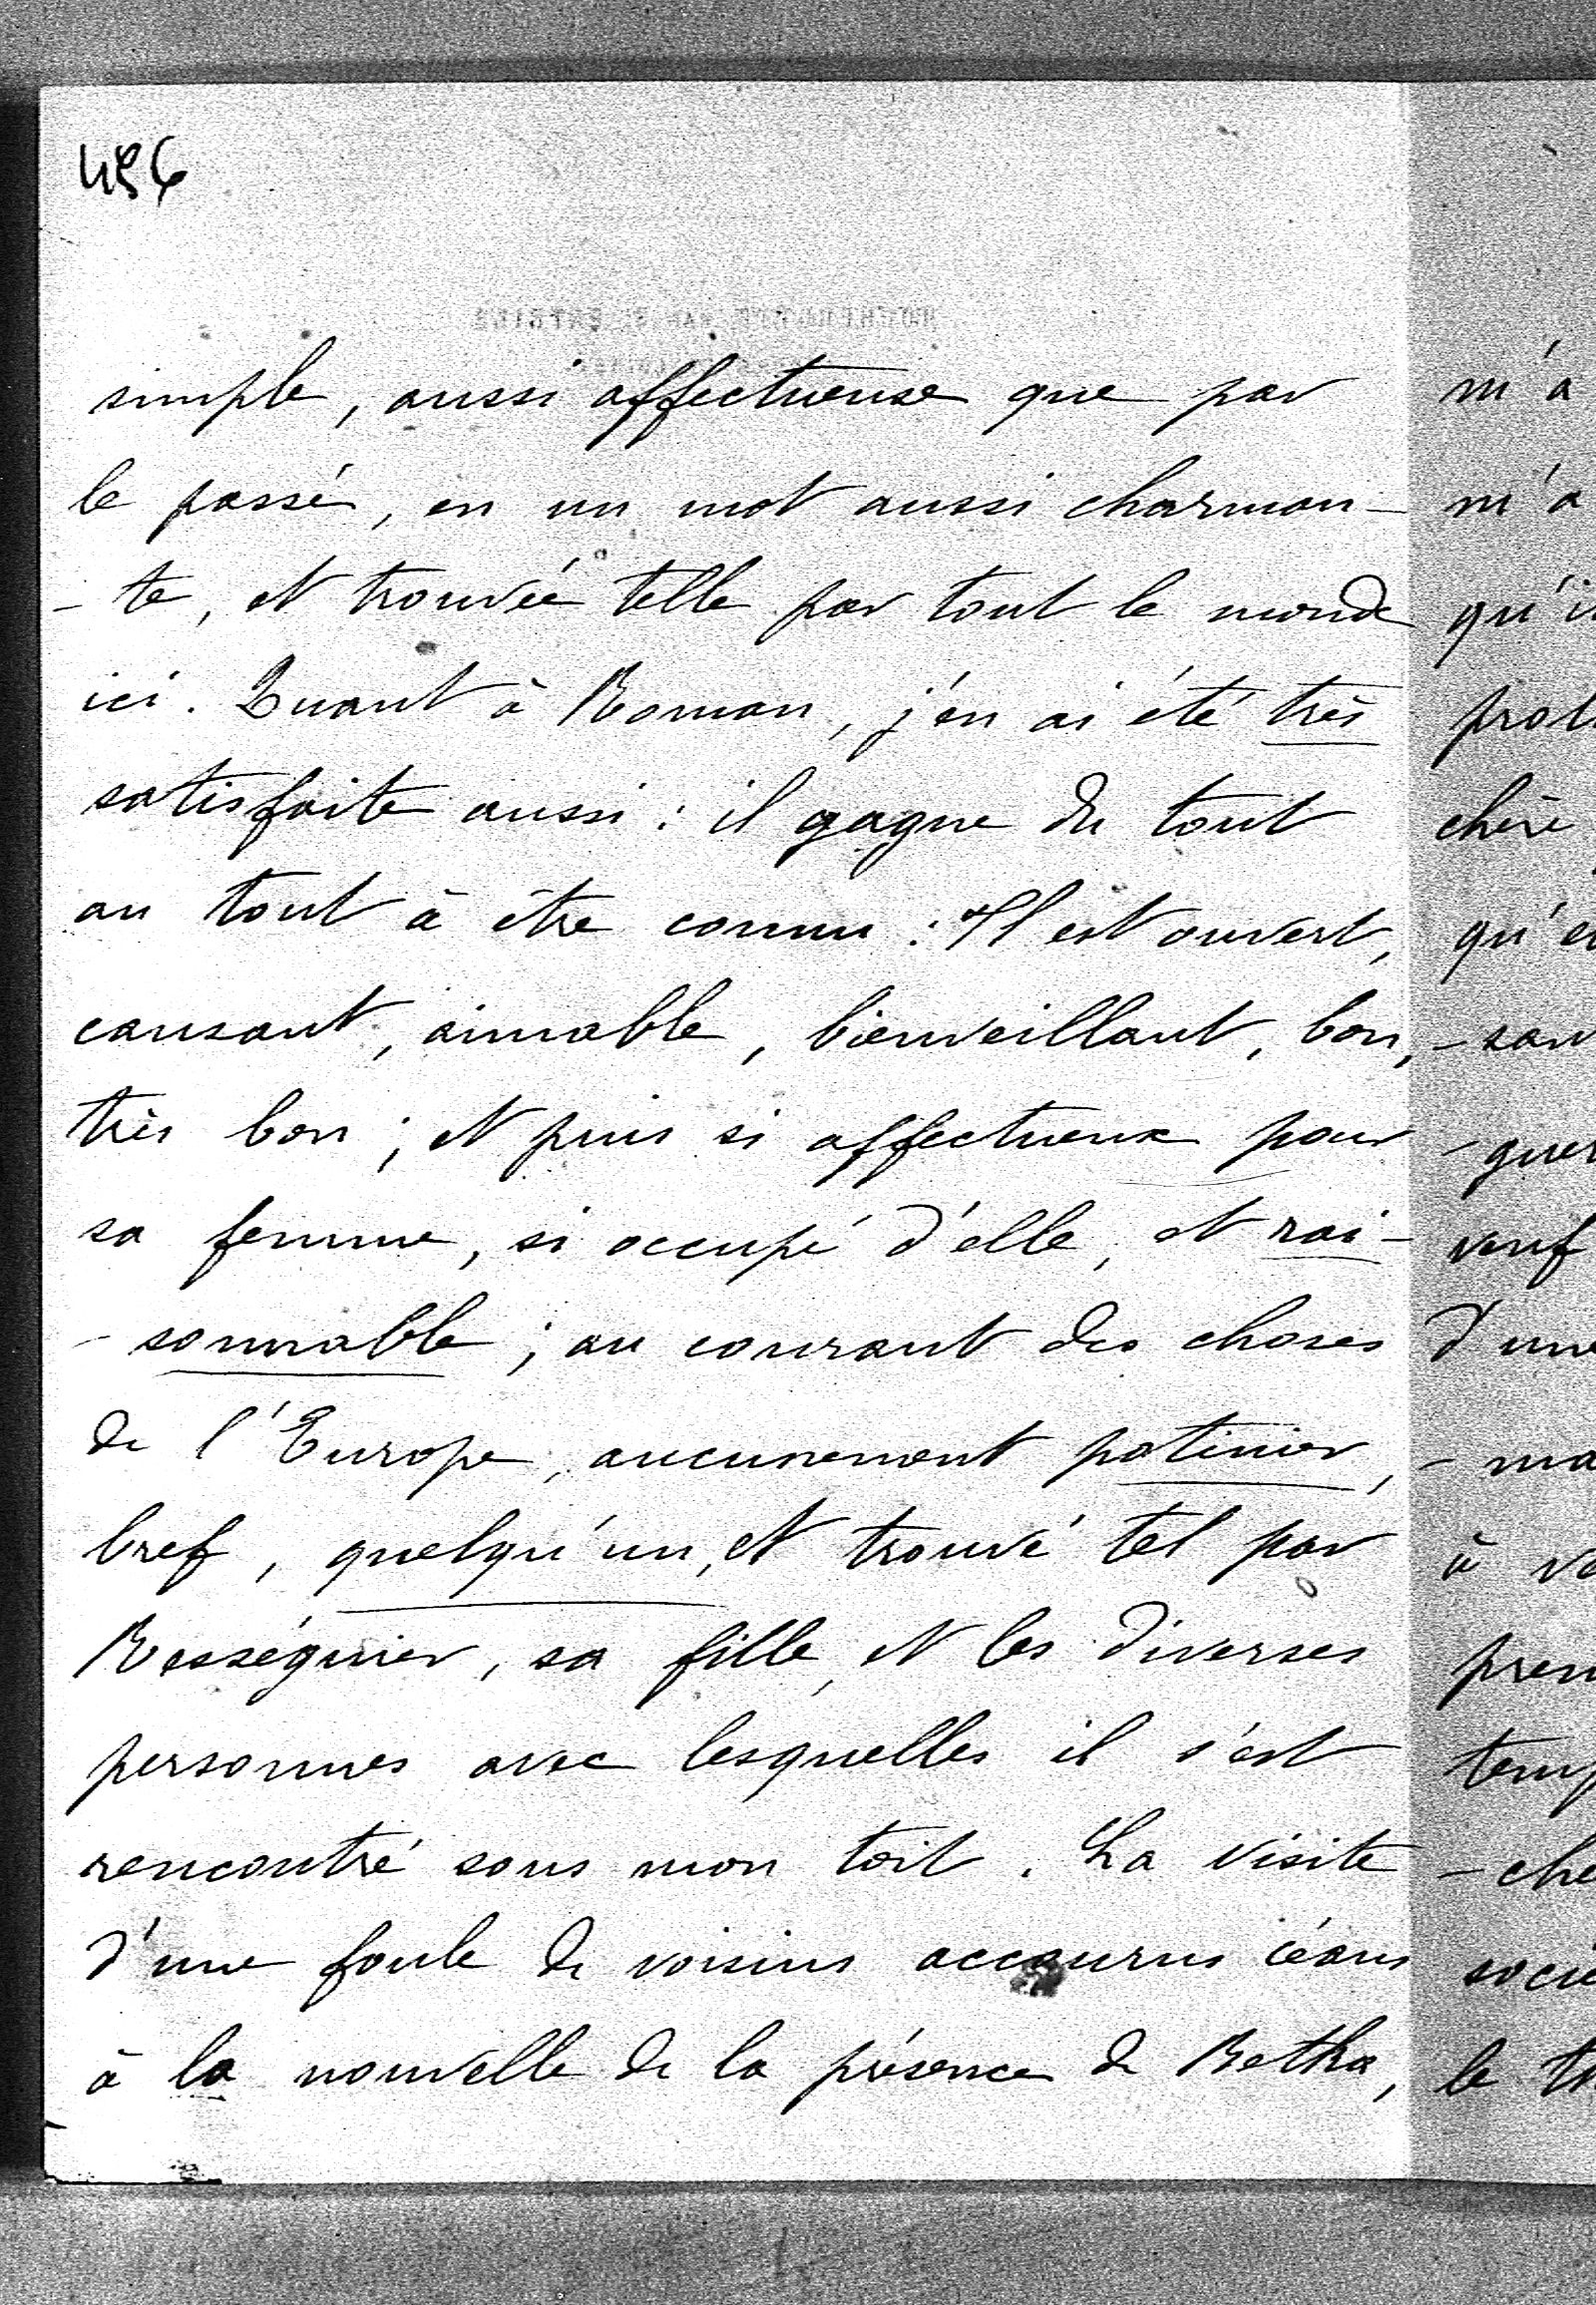 456
simple, aussi affectueuse que par
le passé, en un mot aussi charman-
- te, et trouvée telle par tout le monde
ici. Quant à Roman, j'en ai été très
satisfaite aussi : il gagne du tout
au tout à être connu : Il est ouvert,
causant, aimable, bienveillant, bon,
très bon ; et puis si affectueux pour
sa femme, si occupé d'elle, et rai-
- sonnable ; au courant des choses
de l'Europe, aucunement potinier,
bref, quelqu'un, et trouvé tel par
Rességuier, sa fille, et les diverses
personnes avec lesquelles il s'est
rencontré sous mon toit. La visite
d'une foule de voisins accourus céans
à la nouvelle de la présence de Betka,
m'a
m'a
qu'i
prol
chère
qu'e
- san
- guer
veuf
d'une
- ma
à vo
pren
temp
- che
socié
le t